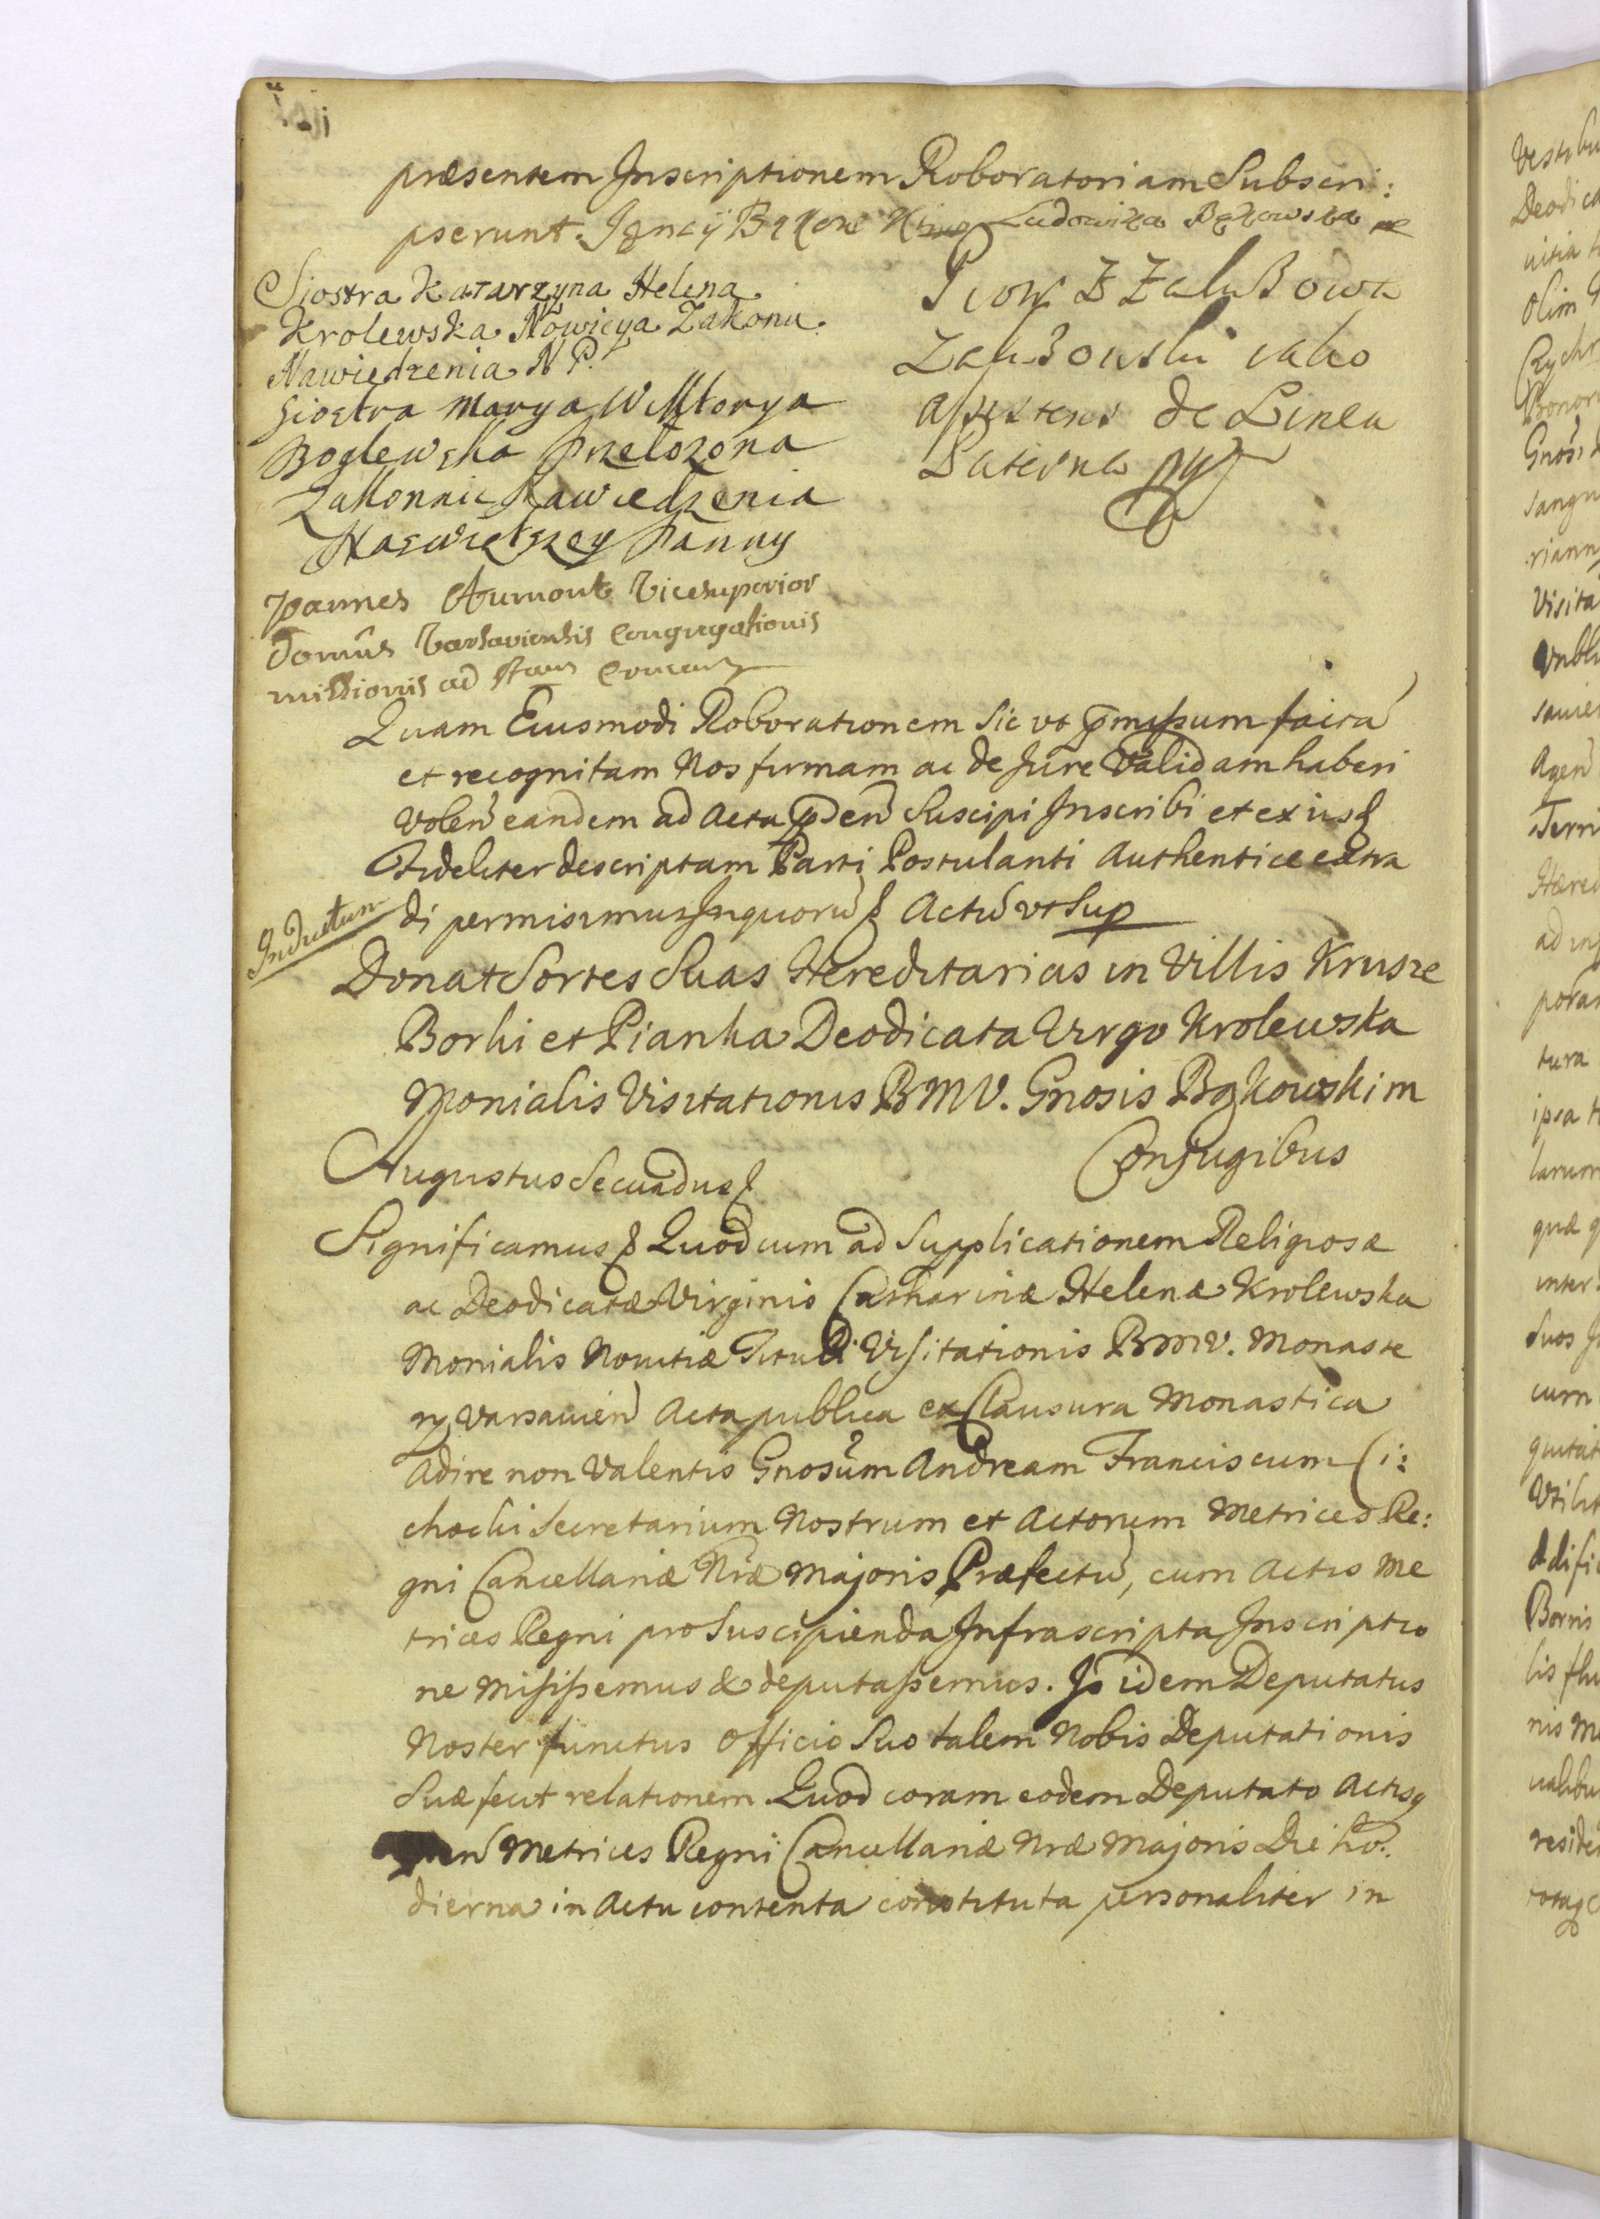 præsentem Inscriptionem Roboratoriam Subscri:
pserunt. Ignacÿ Bąkows Ludowika Bąkowska
Siostra Katarzyna Helena
Krolewska Nowicya Zakonu
Nawiedzenia N P.
Siostra Marya Wiktorya
Boglewska Przełozona
Zakonnic Nawiedzenia
Naswietszey Panny
Piotr Z Załuskowa
Załuskowski iako
Assistens de Linea
Paterna mp
Joannes Aumont Vicesuperior
Domûs Varsaviensis Congregationis
missionis ad Actum
Quam Eiusmodi Roborationem Sic vt p̄missum factã
et recognitam Nos firmam ac de Jure Validam haberi
Volen̄ eandem ad Acta p̄den̄ Suscipi Inscribi et ex ijsd
Fideliter descriptam Parti Postulanti Authentice extra
di permisimus Inquorũ & Actũ vt Sup
Inductum
Donat Sortes Suas Hereditarias in Villis Krusze
Borki et Pianka Deodicata Virgo Krolewska
Monialis Visitationis BMV. Gnosis Bąkowskim
Conjugibus
Augustus Secundus &
Significamus & Quod cum ad Supplicationem Religiosæ
ac Deodicatæ Virginis Catharinæ Helenæ Krolewska
Monialis Novitiæ Tituli Visitationis BMV. Monaste
rÿ Varsavien̄ Acta publica ex Clausura Monastica
Adire non Valentis Gnosum Andream Franciscum Ci:
chocki Secretarium Nostrum et Actorum Metrices Re:
gni Cancellariæ Nræ Majoris Præfectũ, cum Actis Me
trices Regni pro Suscipienda Infrascripta Inscriptio
ne misissemus & deputassemus. Is idem Deputatus
Noster functus Officio Suo talem Nobis Deputationis
Suæ fecit relationem Quod coram eodem Deputato Actisq
en̄ Metrices Regni Cancellariæ Nræ Majoris Die ho:
dierna in Actu contenta constituta personaliter in